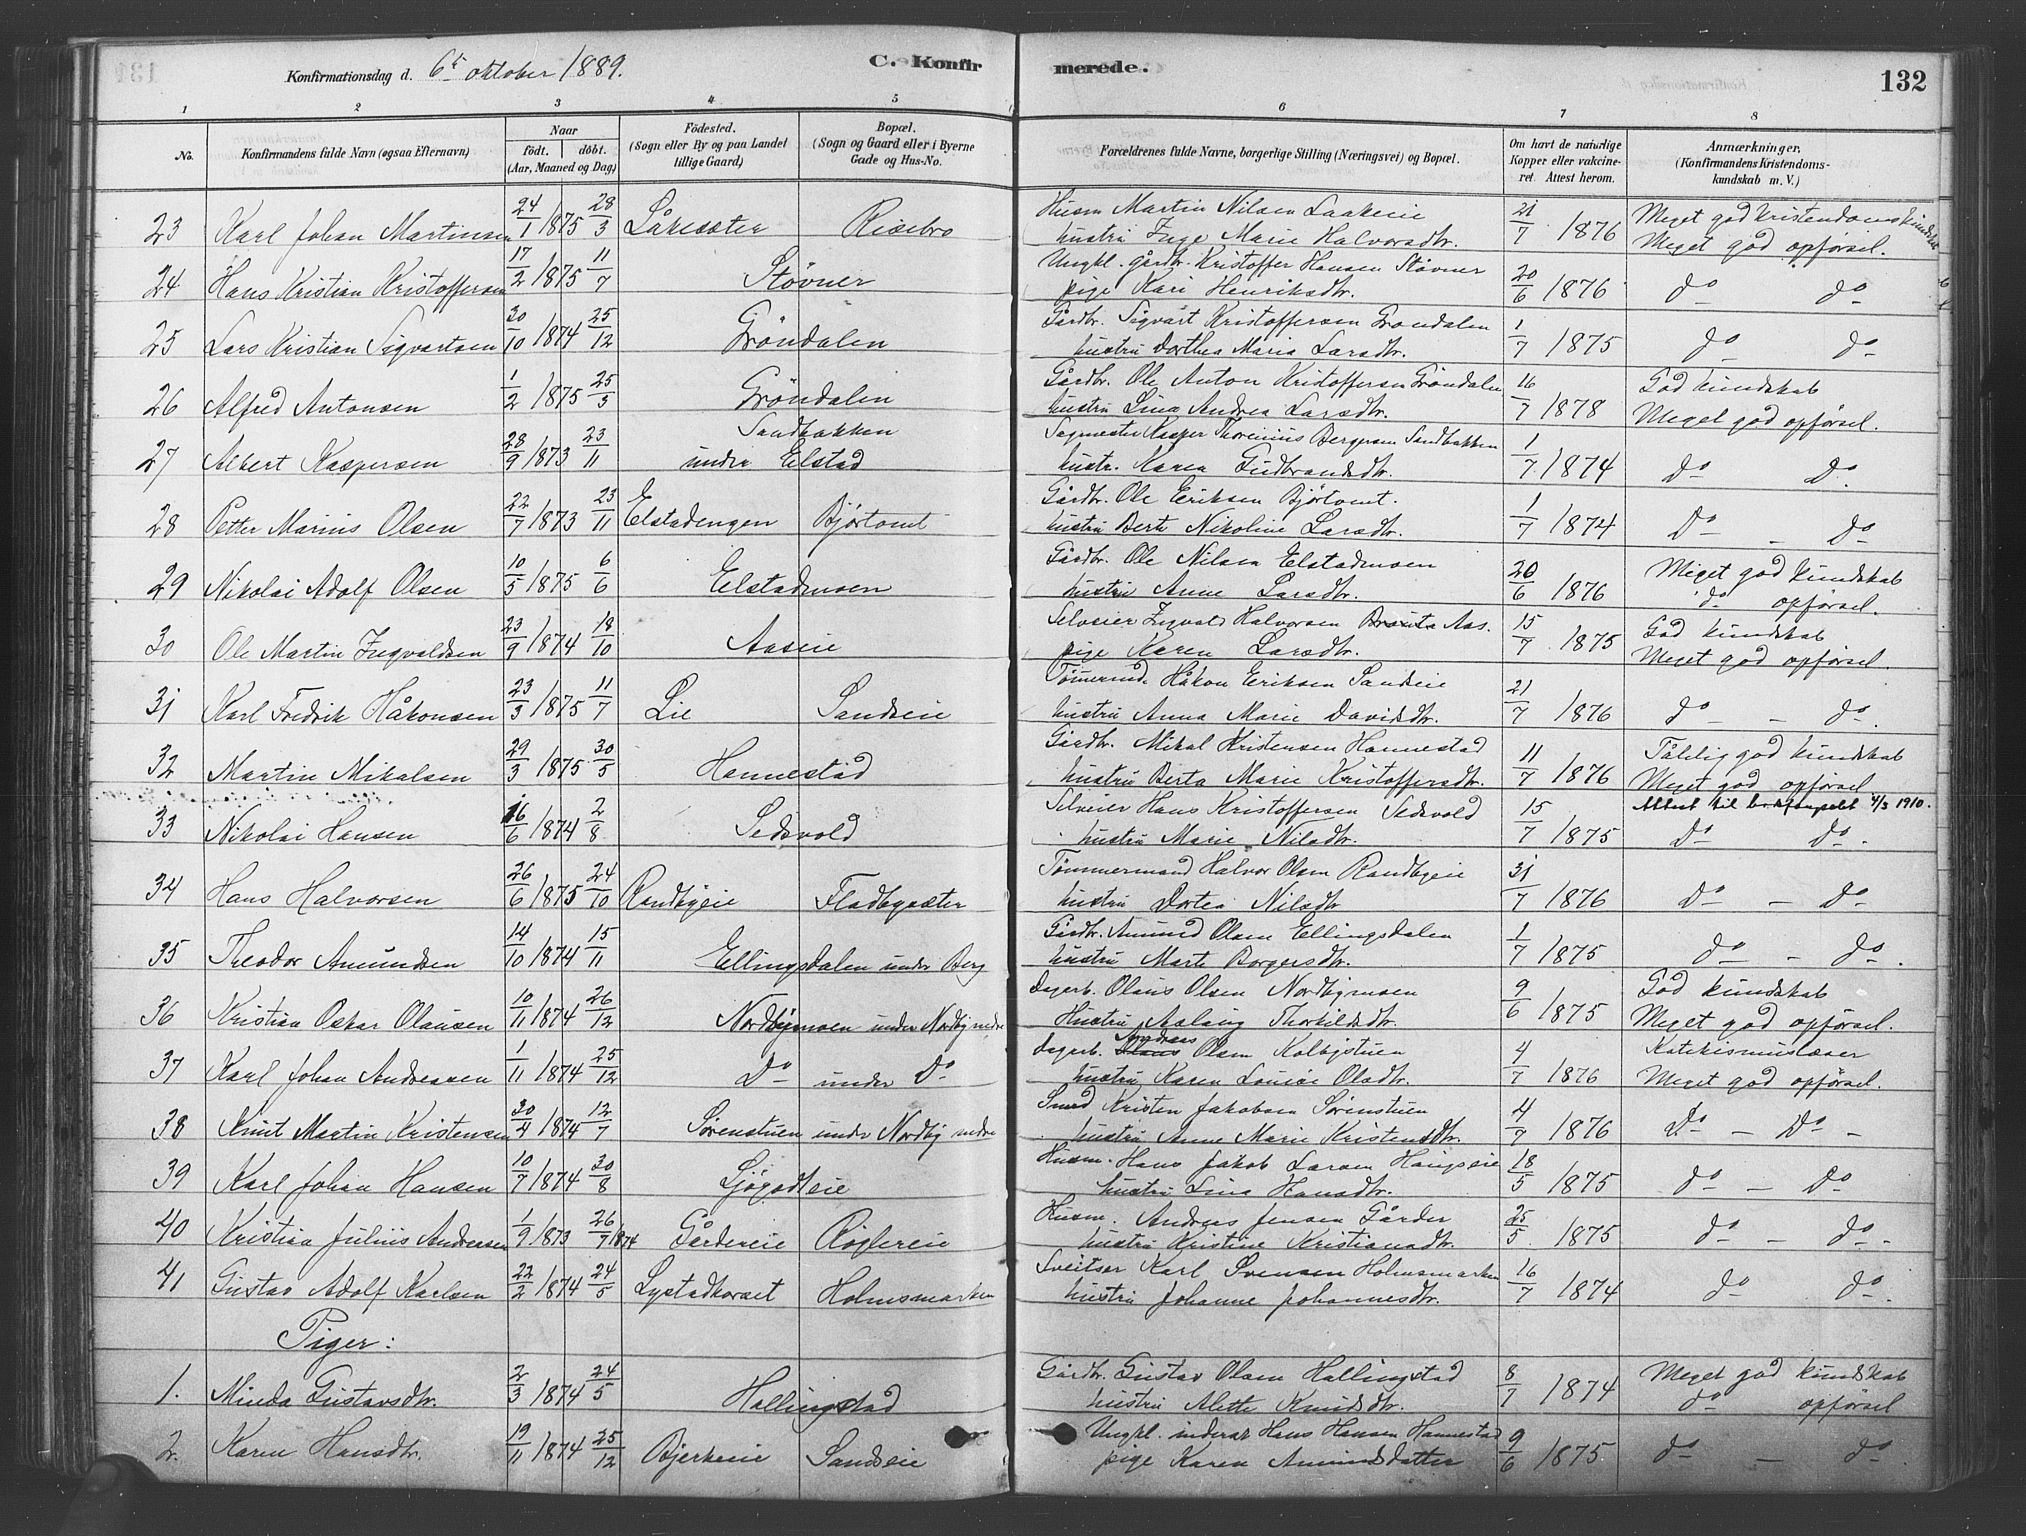 Konfirmationsdag d. 6te oktober 1889. C. Konfir merede. 132
1 2 3 4 5 6 7 8
No. Konfirmandens fulde Navn (ogsaa Efternavn) Naar født. døbt. (Aar, Maaned og Dag) Fødested. (Sogn eller By og paa Landet tillige Gaard) Bopæl. (Sogn og Gaard eller i Byerne Gade og Hus-No. Forældrenes fulde Navne, borgerlige Stilling (Næringsvei) og Bopæl. Om havt de naturlige Kopper eller vaccineret. Attest herom. Anmærkninger. (Konfirmandens Kristendomskundskab m. V.)
23 Karl Johan Martinsen 24/1 1875 28/3 Låkesæter Risebro Husm Martin Nilsen Laakeeie 21/7 1876 Meget god kristendomskundskab
hustru Inge Marie Halvorsdtr. Meget god opførsel.
24 Hans Kristian Kristoffersen 17/2 1875 11/7 Støvner Ungkl. gårdbr. Kristoffer Hansen Støvner 20/6 1876 do do
pige Kari Henriksdtr.
25 Lars Kristian Sigvartsen 30/10 1874 25/12 Gröndalen Gårdbr. Sigvart Kristoffersen Grøndalen 1/7 1875 do do
hustru Dorthea Maria Larsdtr.
26 Alfred Antonsen 1/2 1875 25/3 Gröndalen Gårdbr. Ole Anton Kristoffersen Gröndalen 16/7 1878 God kundskab
hustru Lina Andrea Larsdtr. Meget god opførsel.
27 Albert Kaspersen 28/9 1873 23/11 Sandbakken Sagmester Kasper Thorinius Bergersen Sandbakken 1/7 1874 Do Do
under Elstad hustr. Karen Gudbrandsdtr.
28 Petter Marius Olsen 22/7 1873 23/11 Elstadengen Bjørtomt Gårdbr. Ole Eriksen Bjørtomt. 1/7 1874 Do - do
hustru Berte Nikoline Larsdtr.
29 Nikolai Adolf Olsen 10/5 1875 6/6 Elstadmoen Gårdbr. Ole Nilsen Elstadmoen 20/6 1876 Meget god kundskab
hustru Anne Larsdtr. do opførsel.
30 Ole Martin Ingvaldsen 23/9 1874 18/10 Aaseie Selveier Ingvald Halvorsen Aas. 15/7 1875 God kundskab
pige Karen Larsdtr. Meget god opførsel.
31 Karl Fredrik Håkonsen 23/3 1875 11/7 Lie Sandseie Tömmermd. Håkon Eriksen Sandseie 21/7 1876 do - do.
hustru Anna Marie Davidsdtr.
32 Martin Mikalsen 29/3 1875 30/5 Hannestad Gårdbr. Mikal Kristensen Hannestad 11/7 1876 Tålelig god kundskab
hustru Berta Marie Kristoffersdtr. Meget god opførsel
33 Nikolai Hansen 16/6 1874 2/8 Sedsvold Selveier Hans Kristoffersen Sedsvold 15/7 1875 Attest til 4/3 1910.
hustru Marie Nilsdtr. Do Do.
34 Hans Halvorsen 26/6 1875 24/10 Randbyeie Fladbysæter Tømmermand Halvor Olsen Randbyeie 31/7 1876 Do - Do
hustru Dortea Nilsdtr
35 Theodor Amundsen 14/10 1874 15/11 Ellingsdalen under Berg Gårdbr. Amund Olsen Ellingsdalen 1/7 1875 do - do.
hustru Marte Borgersdtr.
36 Kristian Oskar Olausen 10/11 1874 26/12 Nordbymoen under Nordby nedre Dagarb. Olaus Olsen Nordbymoen 9/6 1875 God kundskab
Hustru Aslaug Thorkildsdtr. Meget god opførsel.
37 Karl Johan Andreasen 1/11 1874 25/12 Do under Do Dagarb. Olaus Andreas Olsen Kolbjstuen 4/7 1876 Katekismuslæser
hustru Karen Louise Olsdtr. Meget god opførsel.
38 Knut Martin Kristensen 30/4 1874 12/7 Sørenstuen under Nordby nedre Smed Kristen Jakobsen Sørenstuen 4/7 1876 Do - Do -
hustru Anne Marie Kristensdtr.
39 Karl Johan Hansen 10/7 1874 30/8 Sjøgodteie Husm. Hans Jakob Larsen Haugseie 18/5 1875 do - Do
hustru Lina Hansdtr.
40 Kristian Julius Andreasen 1/9 1873 26/7 1874 Gårdereie Røglereie Husm. Andreas Jensen Gårder 25/5 1875 do - do -
hustru Kristine Kristiansdtr.
41 Gustav Adolf Karlsen 22/2 1874 24/5 Lystadkorset Holmsmarken Sveitser Karl Svensen Holmsmarken 16/7 1874 do do.
hustru Johanne Johannesdtr.
Piger:
1. Minda Gustavsdtr. 2/3 1874 24/5 Hallingstad Gårdbr. Gustav Olsen Hallingstad 8/7 1874 Meget god kundskab
hustru Alette Knudsdtr. do opførsel
2. Karen Hansdtr. 19/11 1874 25/12 Bjerkeeie Sandseie Ungkl. inderst Hans Hansen Hannestad 9/6 1875 do - do
pige Karen Amundsdatter